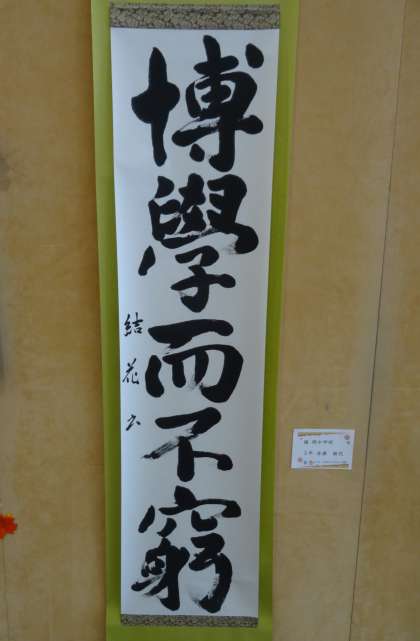 博學而不窮
結花书